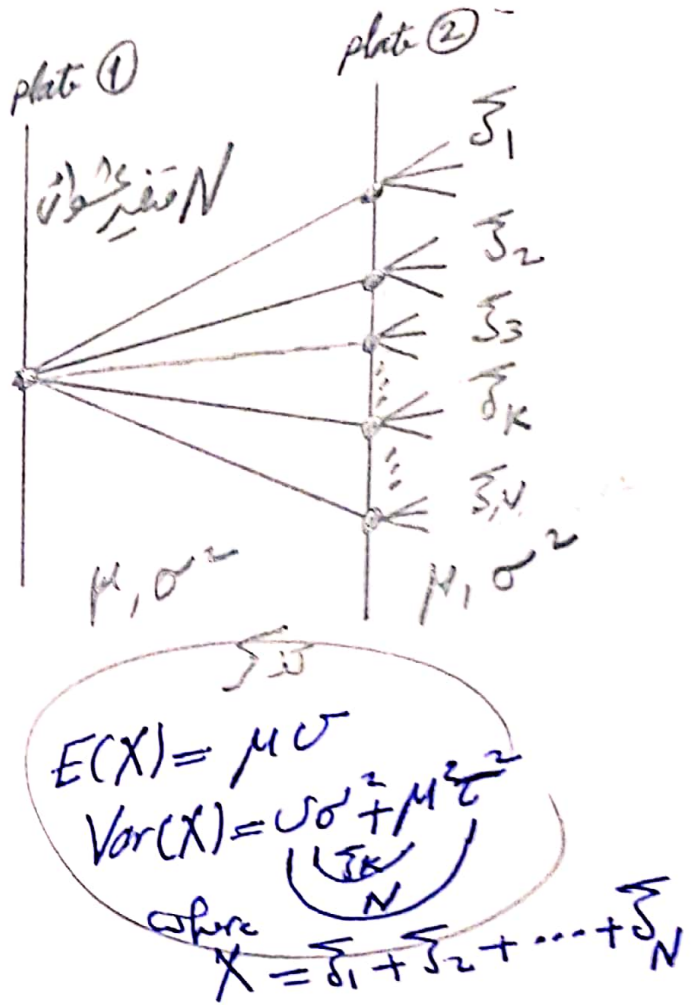 plate ①
plate ②
N
ξ₁
ξ₂
ξ₃
ξ_K
ξ_N
μ, σ²
μ, σ²
E(X) = μυ
Var(X) = υσ² + μ²τ²
ξ_K
N
where
X = ξ₁ + ξ₂ + ⋯ + ξ_N